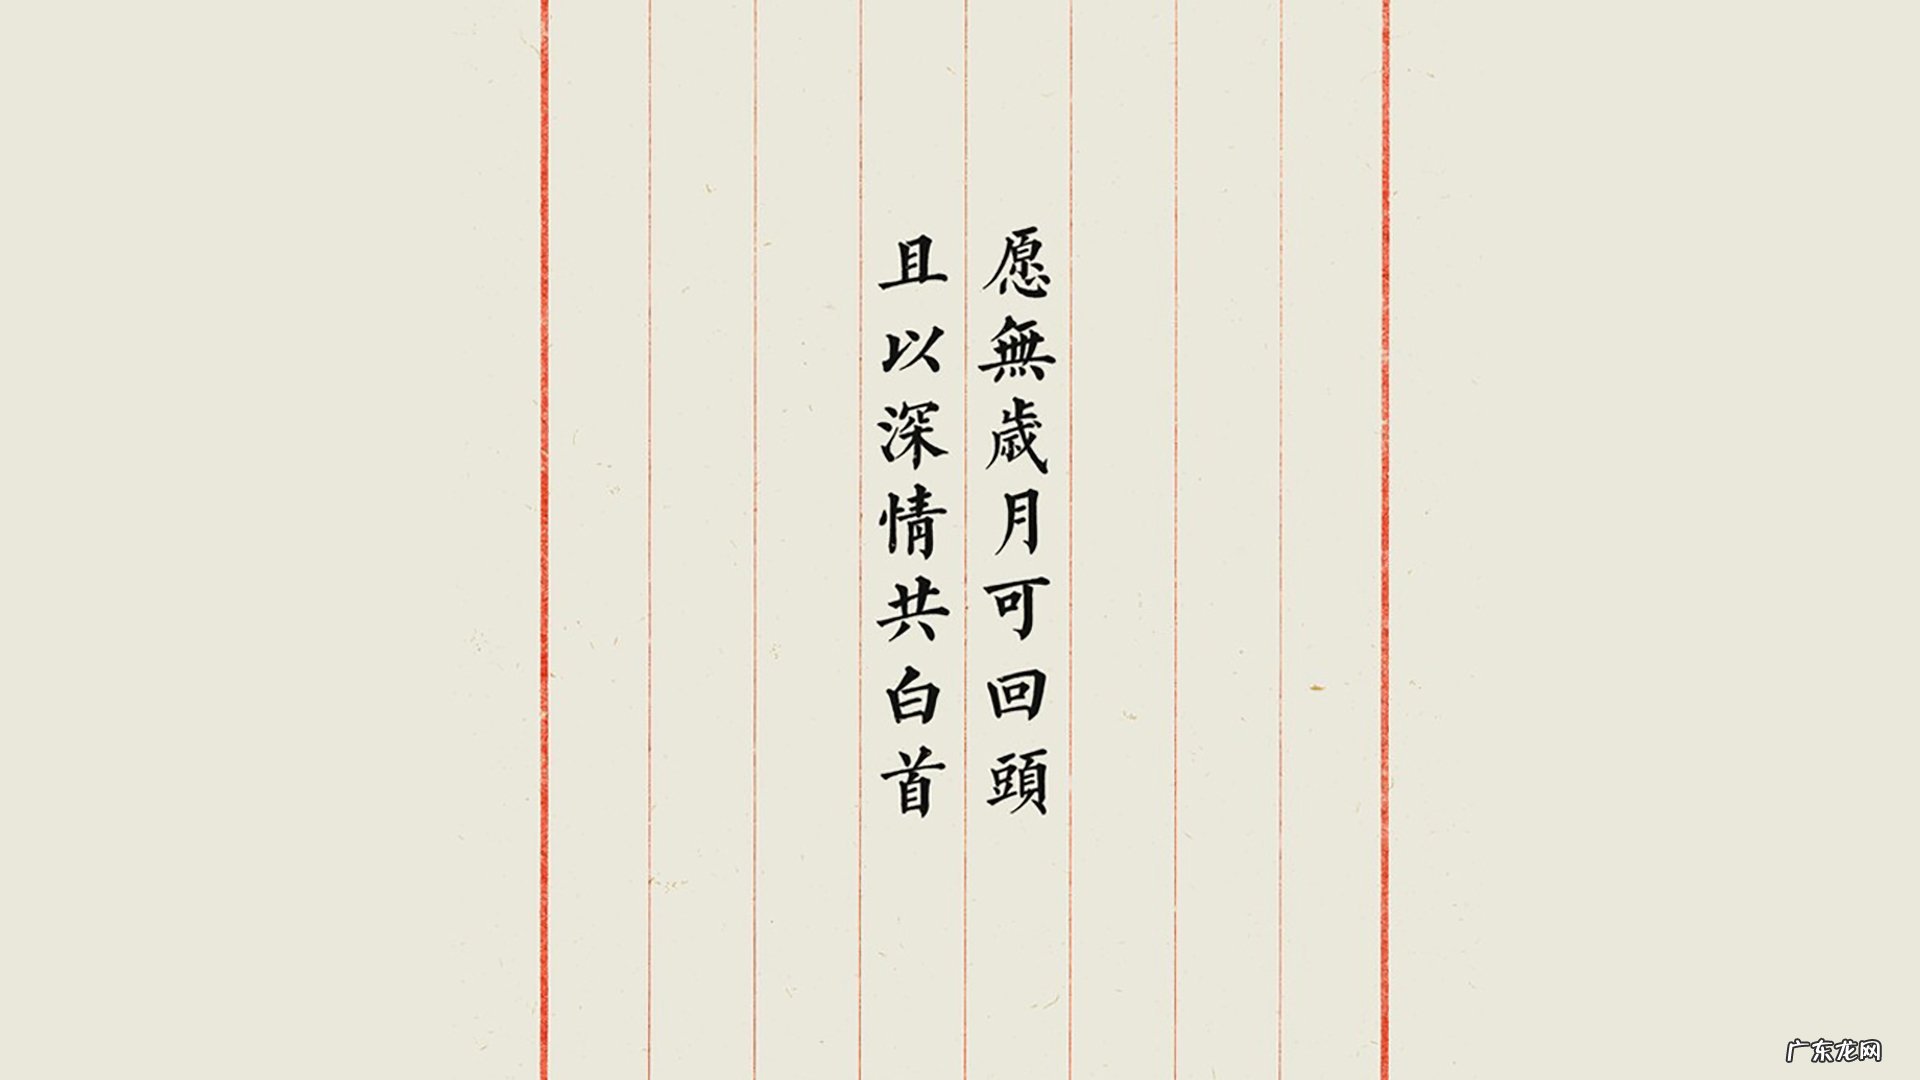 愿無歲月可回頭
且以深情共白首
广东龙网